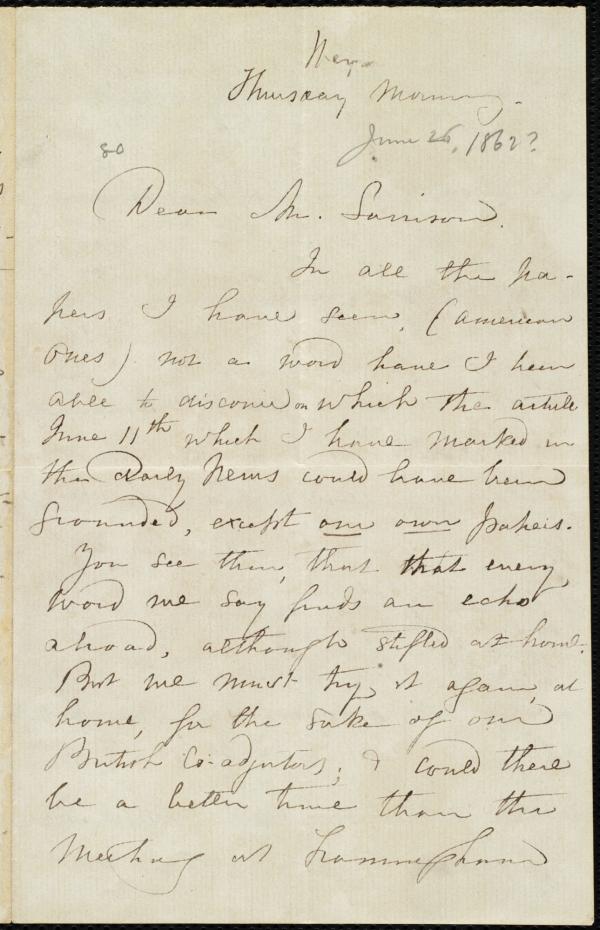 Wey.
Thursday Morning.
June 26, 1862?
80
Dear Mr. Garrison.
In all the pa-
pers I have seen, (American
ones) not a word have I been
able to discover on which the article
June 11th which I have marked in
the Daily News could have been
grounded, except our own papers.
You see then, that that every
word we say finds an echo
abroad, although stifled at home.
But we must try it again, at
home, for the sake of our
British Co-adjutors; & could there
be a better time than the
Meeting at Framingham